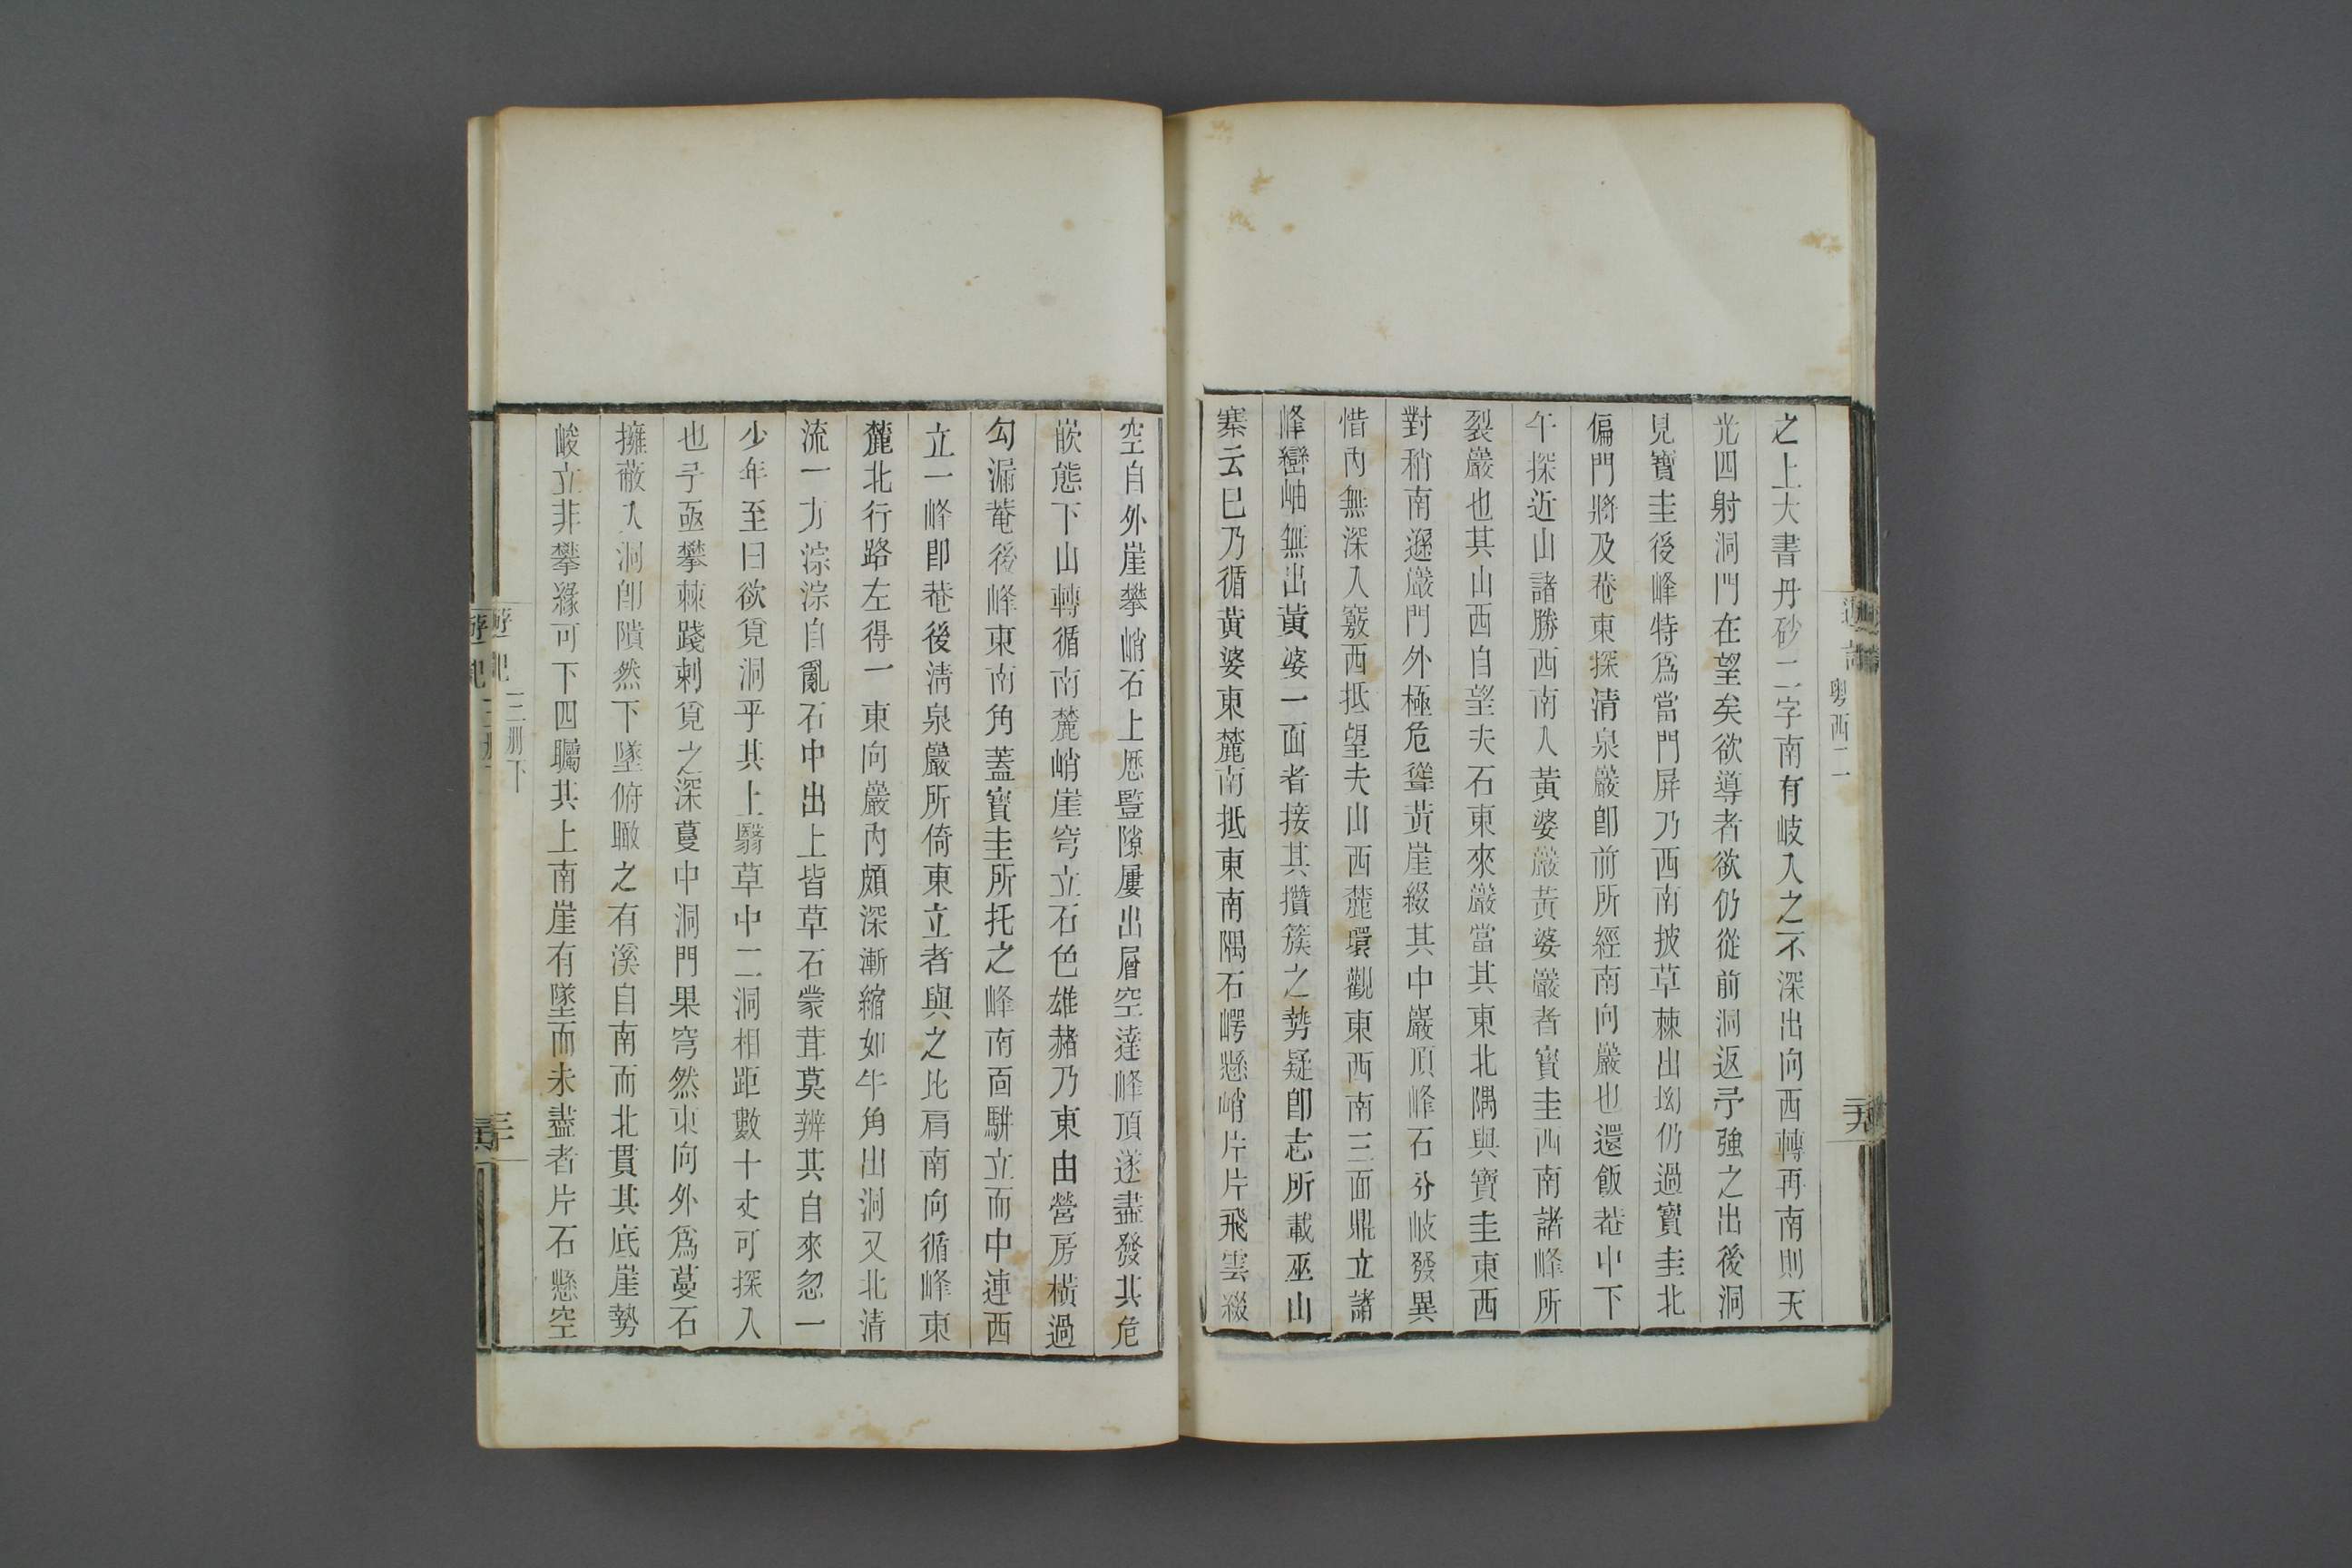 之上大書丹砂二字南有岐入之不深出向西轉再南則天
光四射洞門在望矣欲導者欲仍從前洞返予強之出後洞
見寶圭後峰特爲當門屏乃西南披草棘出坳仍過寶圭北
偏門將及菴東探清泉巖卽前所經南向巖也還飯菴中下
午探近山諸勝西南入黃婆巖黃婆巖者寶圭西南諸峰所
裂巖也其山西自望夫石東來巖當其東北隅與寶圭東西
對稍南遜巖門外極危聳黃崖綴其中巖頂峰石分岐發異
惜內無深入竅西抵望夫山西麓環觀東西南三面鼎立諸
峰巒岫無出黃婆一面者接其攢簇之勢疑卽志所載巫山
寨云已乃循黃婆東麓南抵東南隅石崿懸峭片片飛雲綴
空自外崖攀峭石上歷豎隙屢出層空達峰頂遂盡發其危
嵌態下山轉循南麓峭崖穹立石色雄赭乃東由營房橫過
勾漏菴後峰東南角蓋寶圭所托之峰南面駢立而中連西
立一峰卽菴後清泉巖所倚東立者與之比肩南向循峰東
麓北行路左得一東向巖內頗深漸縮如牛角出洞又北清
流一方淙淙自亂石中出上皆草石蒙茸莫辨其自來忽一
少年至曰欲覓洞乎其上翳草中二洞相距數十丈可探入
也予亟攀棘踐刺覓之深蔓中洞門果穹然東向外爲蔓石
擁蔽入洞卽隤然下墜俯瞰之有溪自南而北貫其底崖勢
峻立非攀緣可下四矚其上南崖有墜而未盡者片石懸空
粵西二
游記
三冊下